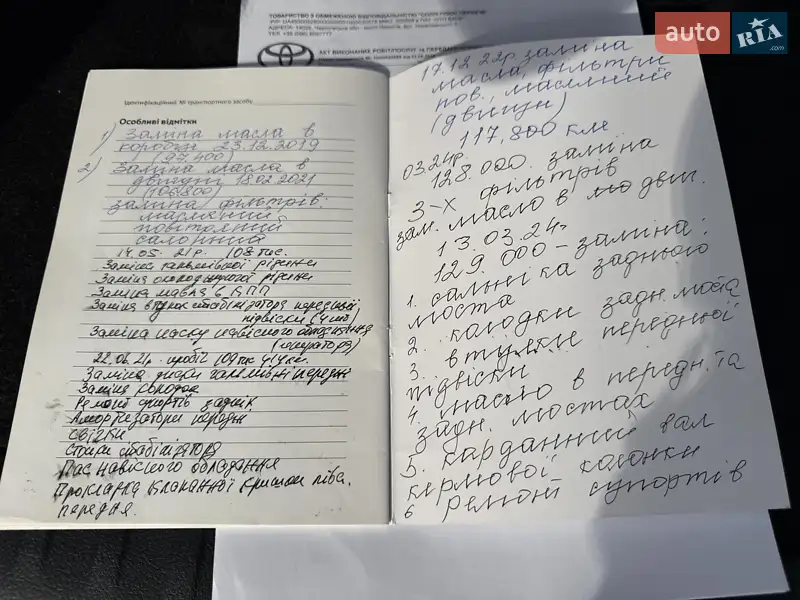 ТОВАРИСТВО З ОБМЕЖЕНОЮ ВІДПОВІДАЛЬНІСТЮ
АКТ ВИКОНАНИХ РОБІТ/ПОСЛУГ ТА ПЕРЕДАЧІ
auto RIA.com
Ідентифікаційний № транспортного засобу
Особливі відмітки
1) Заміна масла в
коробці 23.12.2019
(97400)
2) Заміна масла в
двигуні 18.02.2021
заміна фільтрів:
масляний
повітряний
салонний
14.05.21р. 108 тис.
Заміна гальмівної рідини
Заміна охолоджуючої рідини
Заміна масла в КПП
Заміна втулок стабілізатора передньої
підвіски (4 шт)
Заміна пасу навісного обладнання
(генератора)
пробіг 109 тис 414 км.
Заміна диски гальмівні передні
Заміна колодок
Ремонт супортів задніх
Амортизатори передні
Свічки
Стойки стабілізатора
Пас навісного обладнання
Прокладка клапанної кришки ліва.
передня
17.12.22р заміна
масла, фільтри
пов., масляний
(двигун)
117,800 км
03.24р.
128.000. заміна
3-х фільтрів
зам. масло в дви.
13.03.24г
129.000 – заміна:
1. сальніка заднього
моста
2. колодки задн. моста
3. втулки передньої
підвіски
4. масло в передн. та
задн. мостах
5. карданний вал
кермової колонки
6 ремонт супортів